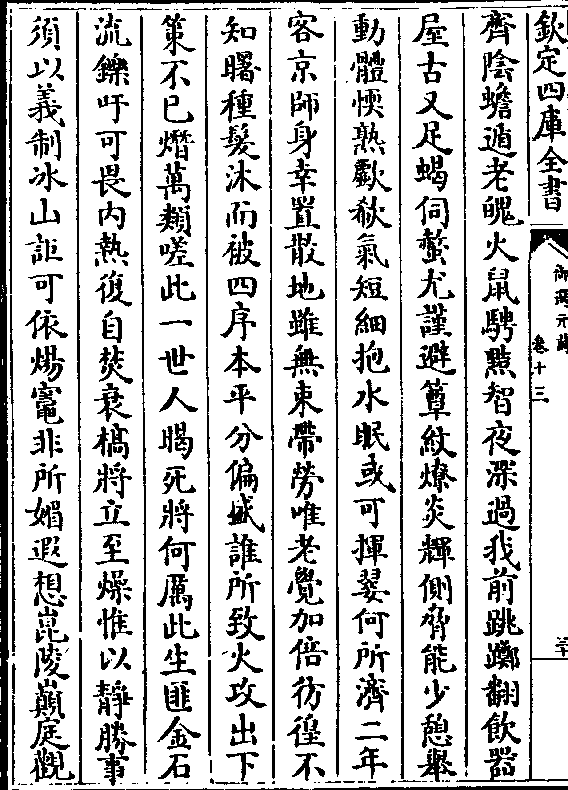 欽定四庫全書
御選元詩
卷十三
三十
齊陰蟾遁老魄火鼠騁黠智夜深過我前跳躑翻飲器
屋古又足蝎伺螫尤謹避簟紋燎炎輝側脅能少憩舉
動體愞熟歠欷氣短細抱水眠或可揮翣何所濟二年
客京師身幸置散地雖無束帶勞唯老覺加倍彷徨不
知曙種髮沐而被四序本平分偏盛誰所致火攻出下
策不已熸萬類嗟此一世人暍死將何厲此生匪金石
流鑠吁可畏内熱復自焚衰槁將立至燥惟以靜勝事
須以義制冰山詎可依煬竈非所媚遐想崑陵巔庭觀